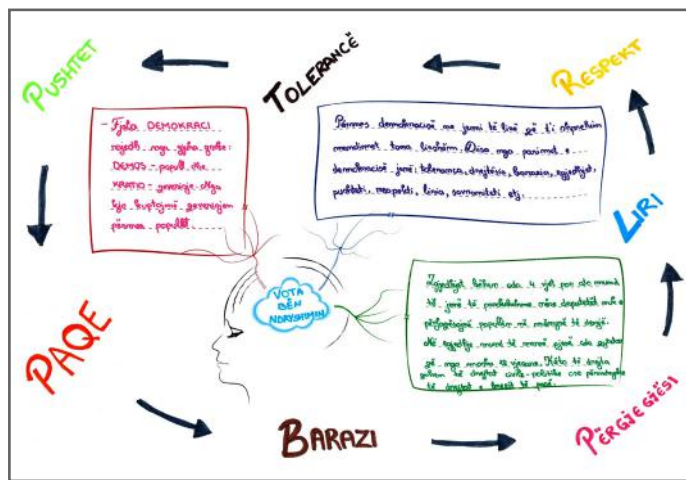 PUSHTET
TOLERANCË
RESPEKT
- Fjala DEMOKRACI
rrjedh nga gjuha greke:
DEMOS - popull dhe
KRATO - qeverisje. Nga
kjo kuptojmë qeverisjen
përmes popullit
Përmes demokracisë ne jemi të lirë që t'i shprehim
mendimet tona lirshëm. Disa nga parimet e
demokracisë janë: toleranca, drejtësia, barazia, zgjedhjet,
pushteti, respekti, liria, sovraniteti etj.
LIRI
VOTA
BËN
NDRYSHIMIN
Zgjedhjet bëhen çdo 4 vjet por ato mund
të jenë të parakohshme, nëse deputetët nuk e
përfaqësojnë popullin në mënyrë të drejtë.
Në zgjedhje mund të marrë pjesë çdo qytetar
që nga mosha 18 vjeçare. Këto të drejta
quhen të drejtat civile-politike ose përmblidhen
të drejtat e brezit të parë.
PAQE
BARAZI
PËRGJEGJËSI